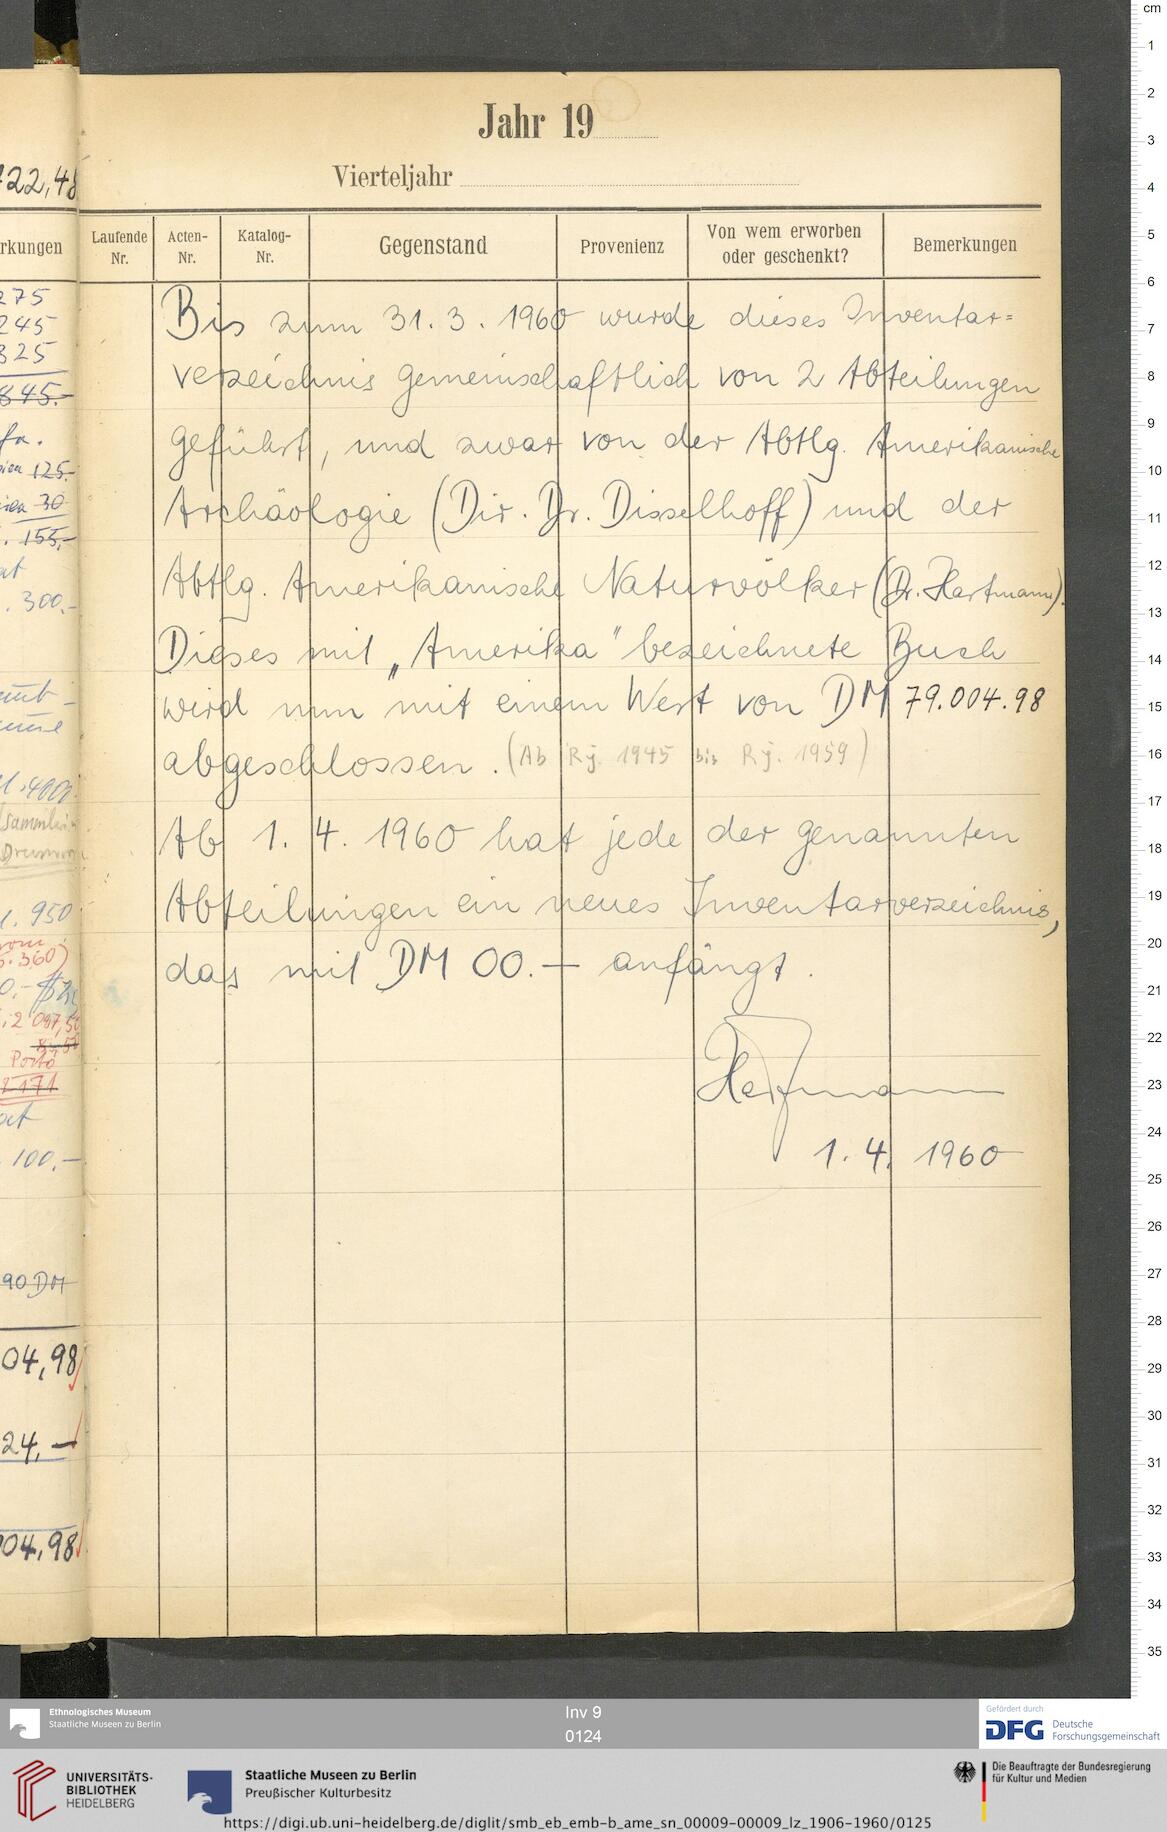 Jahr 19
Vierteljahr
Laufende Nr.
Acten-Nr.
Katalog-Nr.
Gegenstand
Provenienz
Von wem erworben oder geschenkt?
Bemerkungen
Bis zum 31. 3. 1960 wurde dieses Inventar=
verzeichnis gemeinschaftlich von 2 Abteilungen
geführt, und zwar von der Abtlg. Amerikanische
Archäologie (Dir. Dr. Disselhoff) und der
Abtlg. Amerikanische Naturvölker (Dr. Hartmann).
Dieses mit „Amerika" bezeichnete Buch
wird nun mit einem Wert von DM 79.004.98
abgeschlossen. (Ab Rj. 1945 bis Rj. 1959)
Ab 1. 4. 1960 hat jede der genannten
Abteilungen ein neues Inventarverzeichnis,
das mit DM 00.— anfängt.
Hartmann
1. 4. 1960
22,48
rkungen
275
245
325
845.-
125.-
30
155,-
300.-
1.4000.
1. 950
360)
2 097,50
Porto
2171
100,-
90 DM
04,98
24,—
04,98
cm
1
2
3
4
5
6
7
8
9
10
11
12
13
14
15
16
17
18
19
20
21
22
23
24
25
26
27
28
29
30
31
32
33
34
35
Ethnologisches Museum
Staatliche Museen zu Berlin
Inv 9
0124
Gefördert durch
DFG Deutsche
Forschungsgemeinschaft
UNIVERSITÄTS-
BIBLIOTHEK
HEIDELBERG
Staatliche Museen zu Berlin
Preußischer Kulturbesitz
Die Beauftragte der Bundesregierung
für Kultur und Medien
https://digi.ub.uni-heidelberg.de/diglit/smb_eb_emb-b_ame_sn_00009-00009_lz_1906-1960/0125